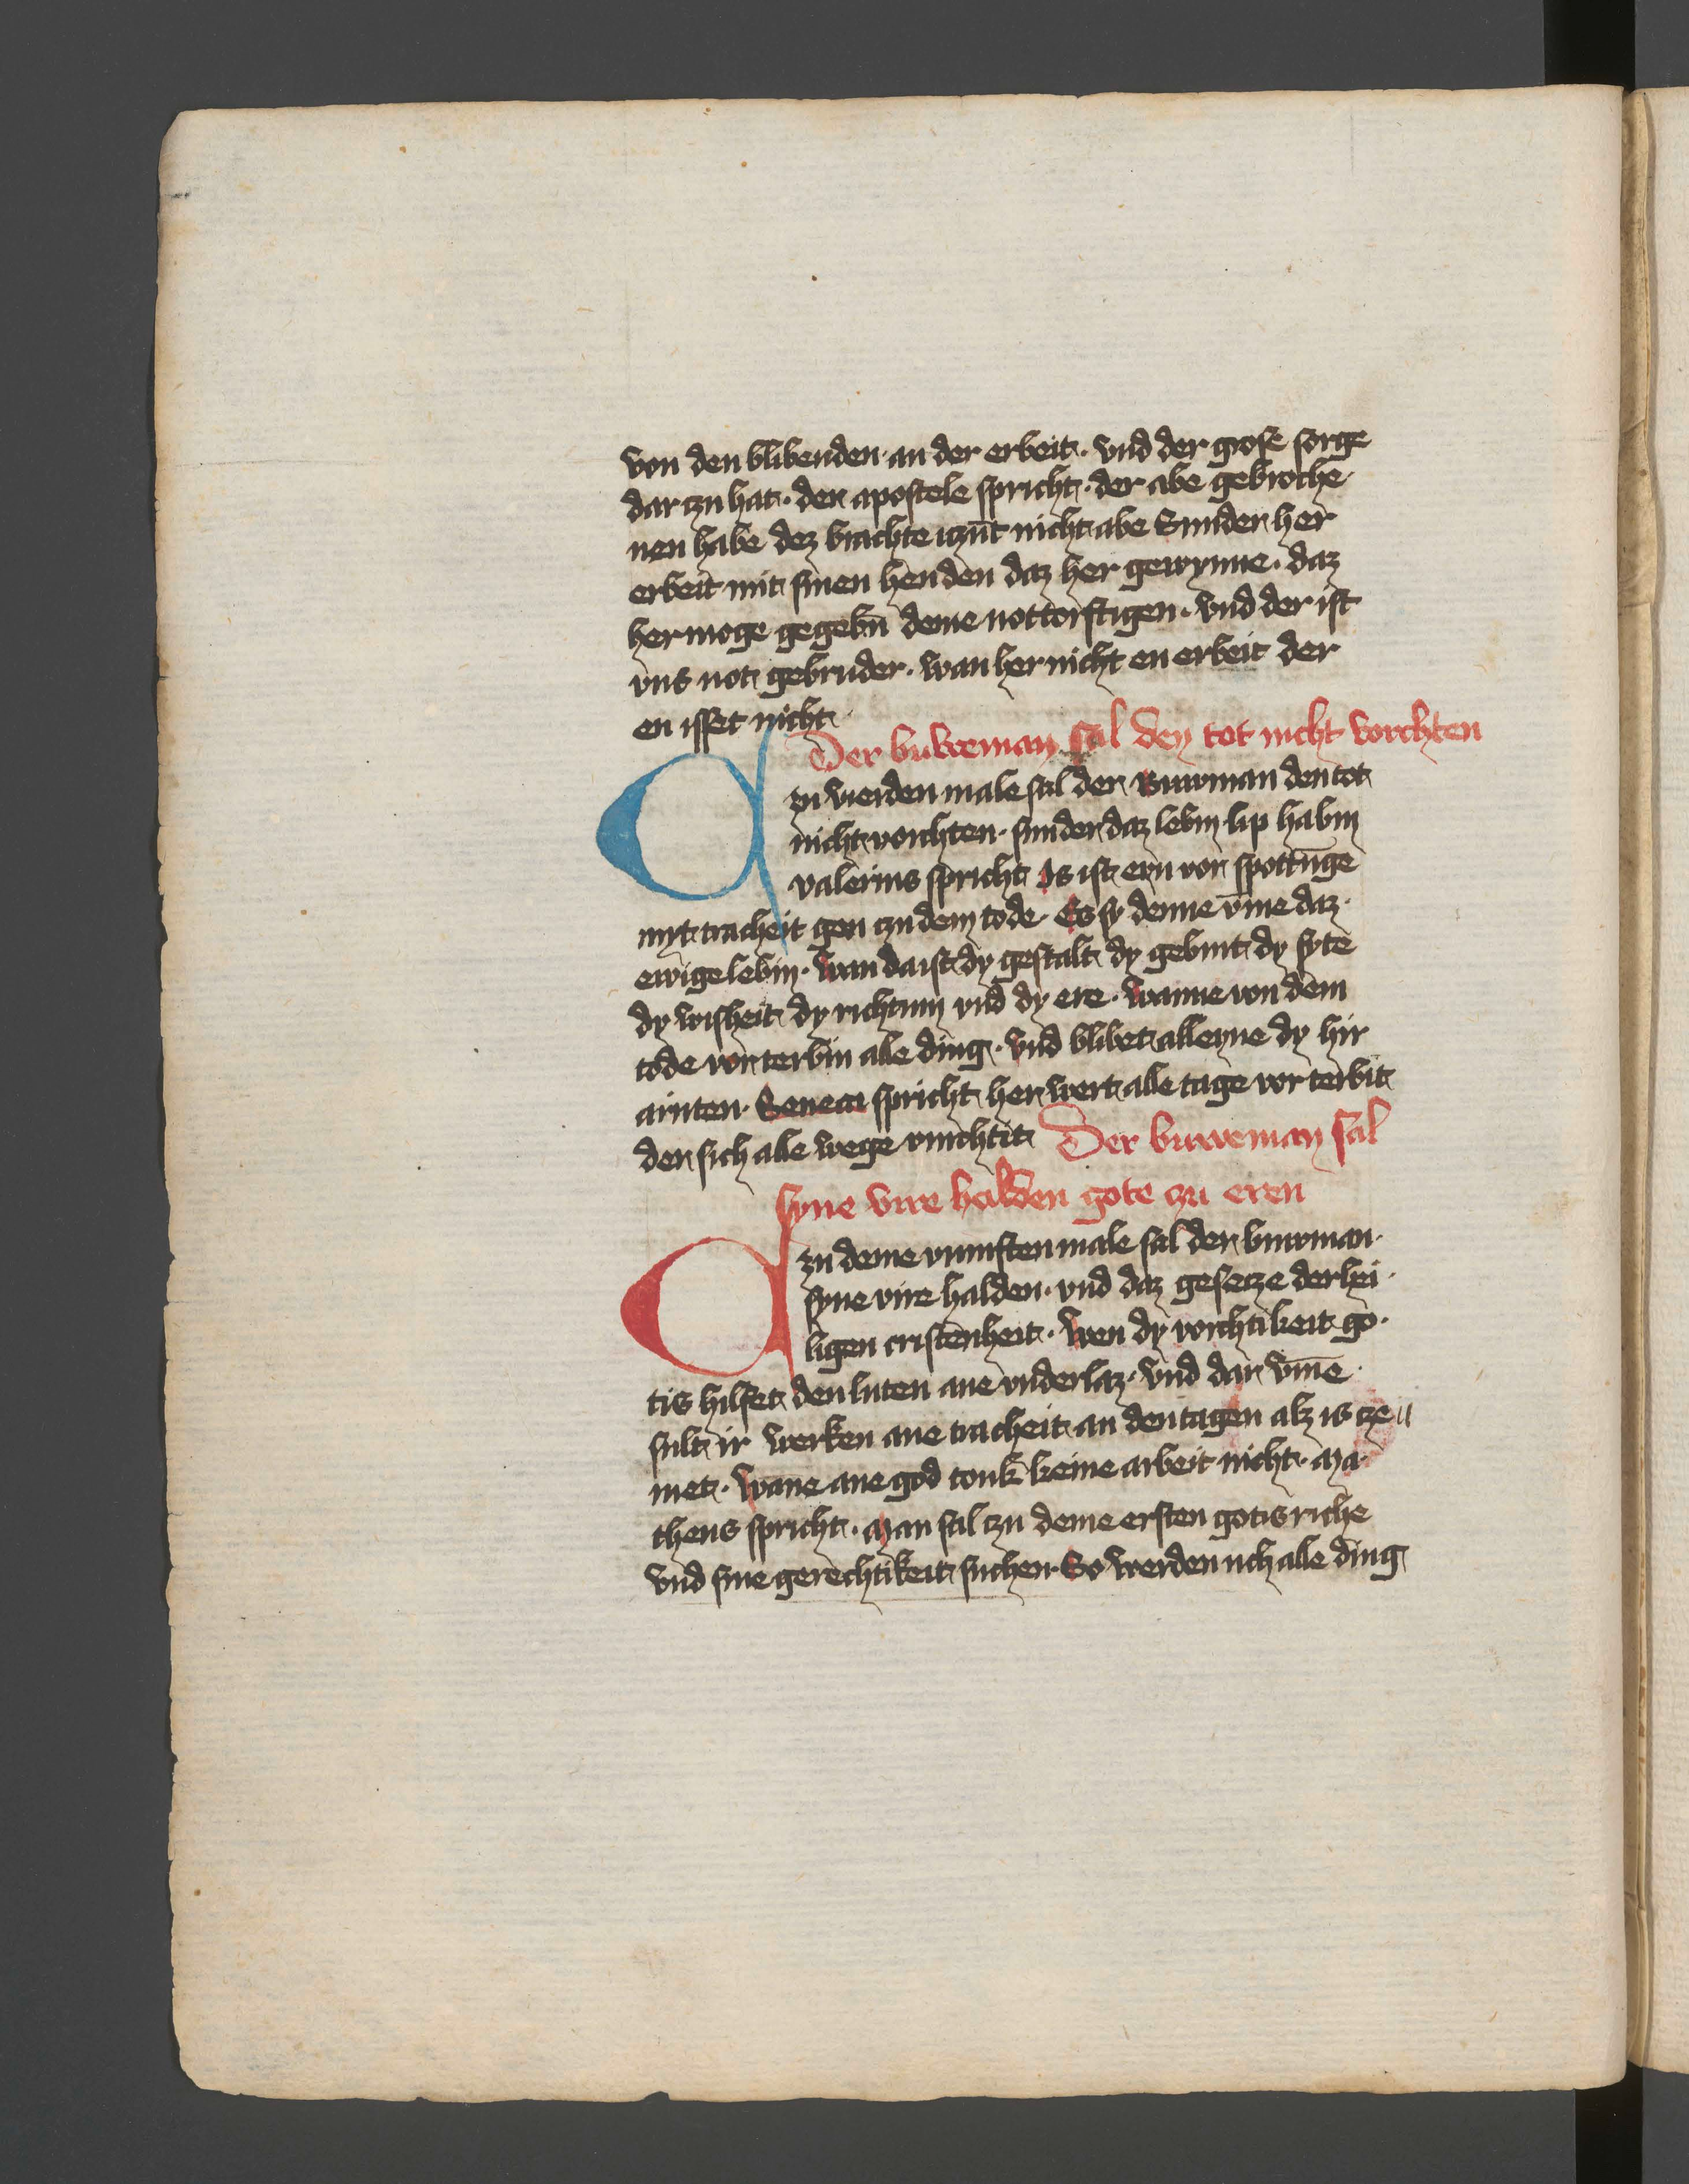 von den blibenden an der erbeit · vnd der grose sorge
dar czu hat · der apostele spricht · der abe gebroche
nen habe dez brachte iczūt nicht abe Sunder her
erbeit mit sinen henden daz her gewynne · daz
her moge gegebn̄ deme nottorftigen · vnd der ist
vns not gebruder · wan her nicht en erbeit der
en isset nicht
Der buweman sal den tot nicht vorchten
Czu vierden male sal der Buwman den tot
nicht vorchten · sunder daz lebin lip habin
valerius spricht Is ist eyn vor spottūge
myt tracheit gen czu dem tode · Es sy denne vm̄e daz ·
ewige lebin · wan da ist dy gestalt dy geburt dy syte
dy wisheit dy richtum vnd dy ere · wanne von dem
tode vorterbin alle ding · vnd blibet alleyne dy hir
arnten · Seneca spricht her wert alle tage vor terbit
der sich alle wege vorchtit Der buweman sal
syne vire halden gote czu eren
Czu deme vumften male sal der buwman ·
syne vire halden · vnd daz gesecze der hei ·
ligen cristenheit · Wen dy vorchtikeit go ·
tis hilfet den luten ane vnderlaz · vnd dar vm̄e ·
sult ir werken ane tracheit an den tagen alz is cze
met · Wane ane god touk keine arbeit nicht · Ma
theus spricht · Man sal czu deme ersten gotis riche
vnd sine gerechtikeit suchen So werden uch alle ding